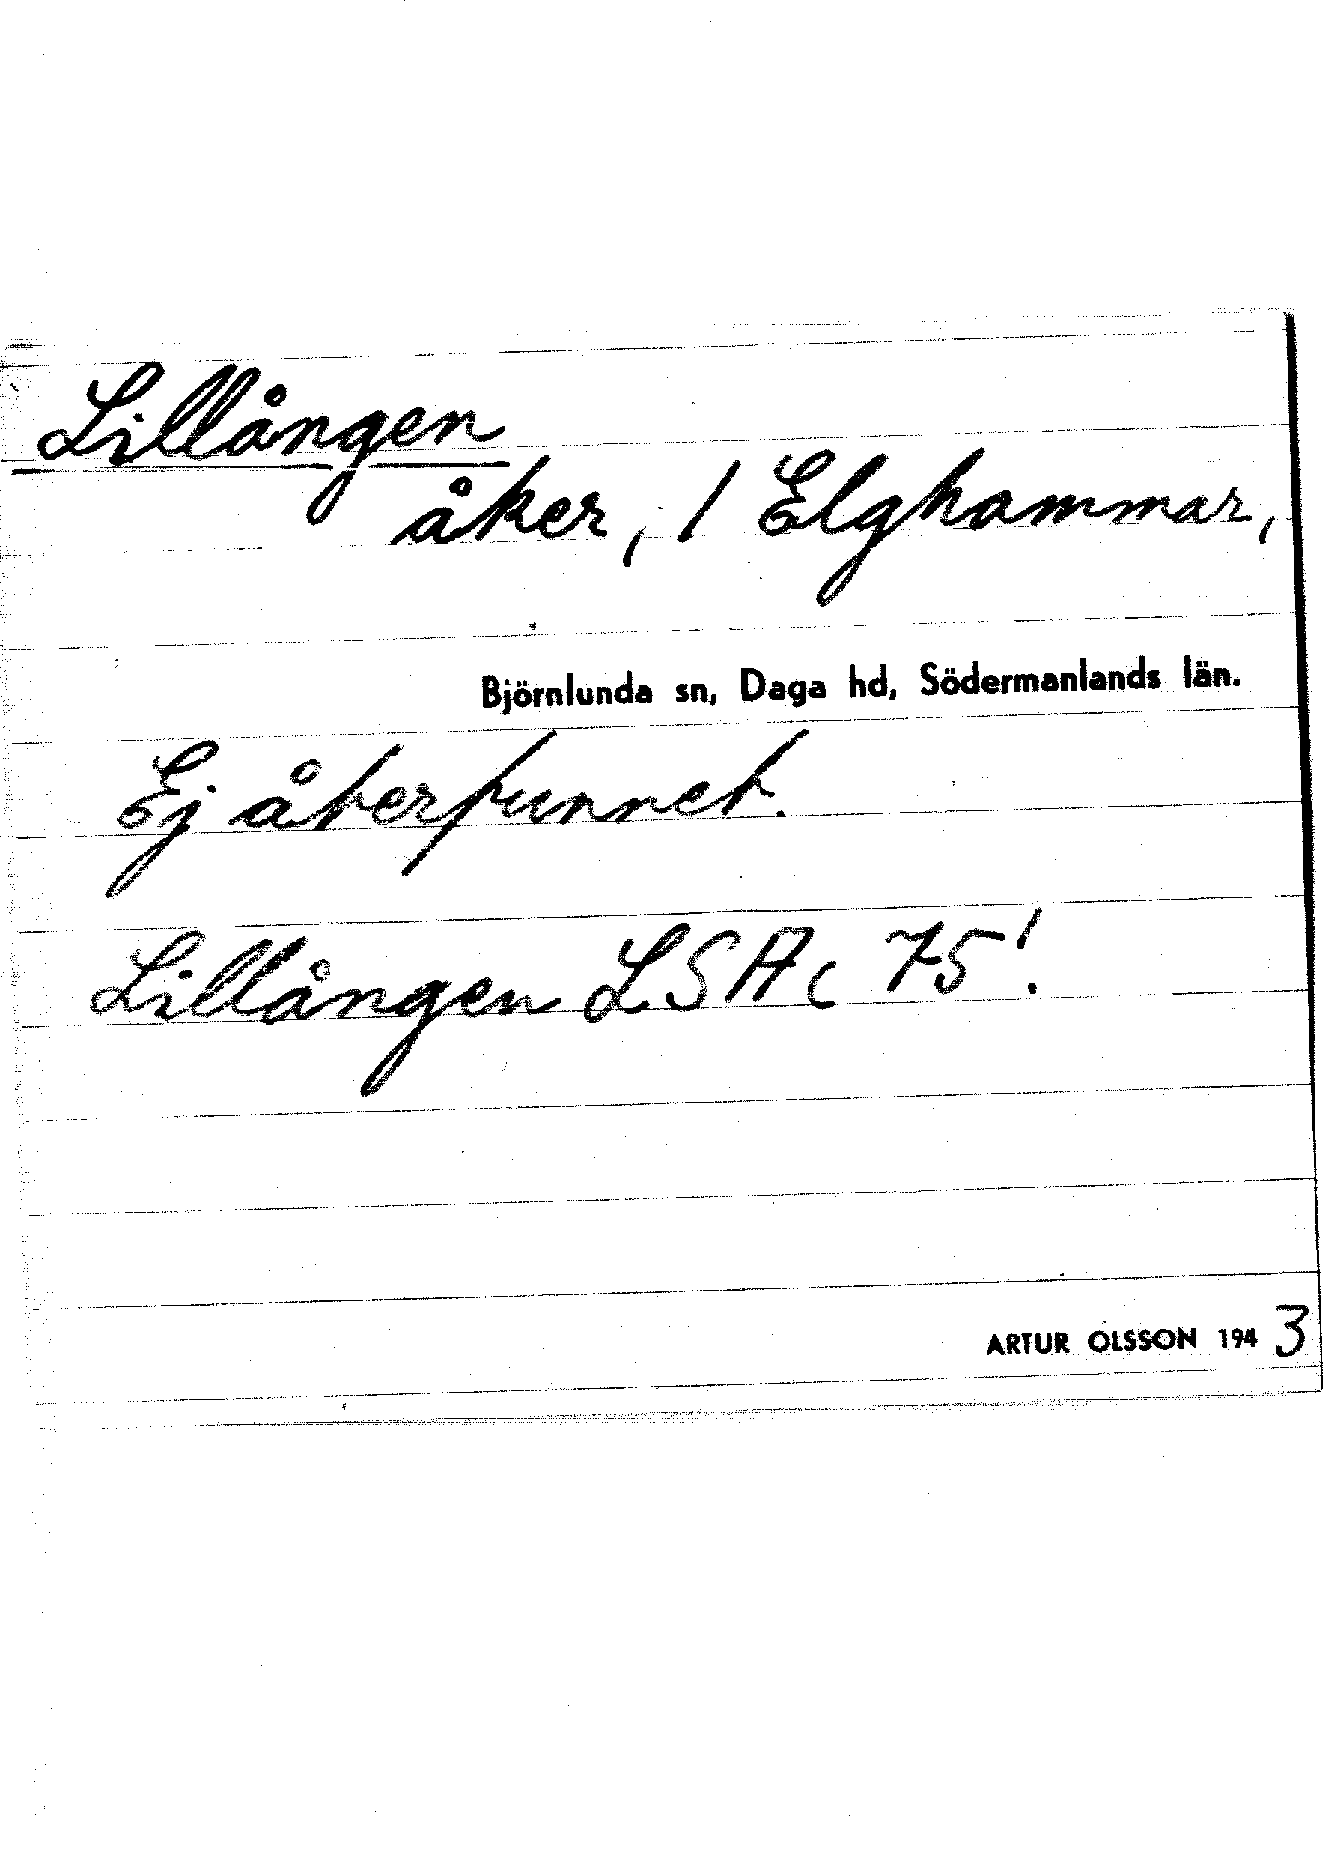 Lillången
åker, 1 Elghammar,
Björnlunda sn, Daga hd, Södermanlands län.
Ej återfunnet.
Lillången LSAc 75!
ARTUR OLSSON 1943